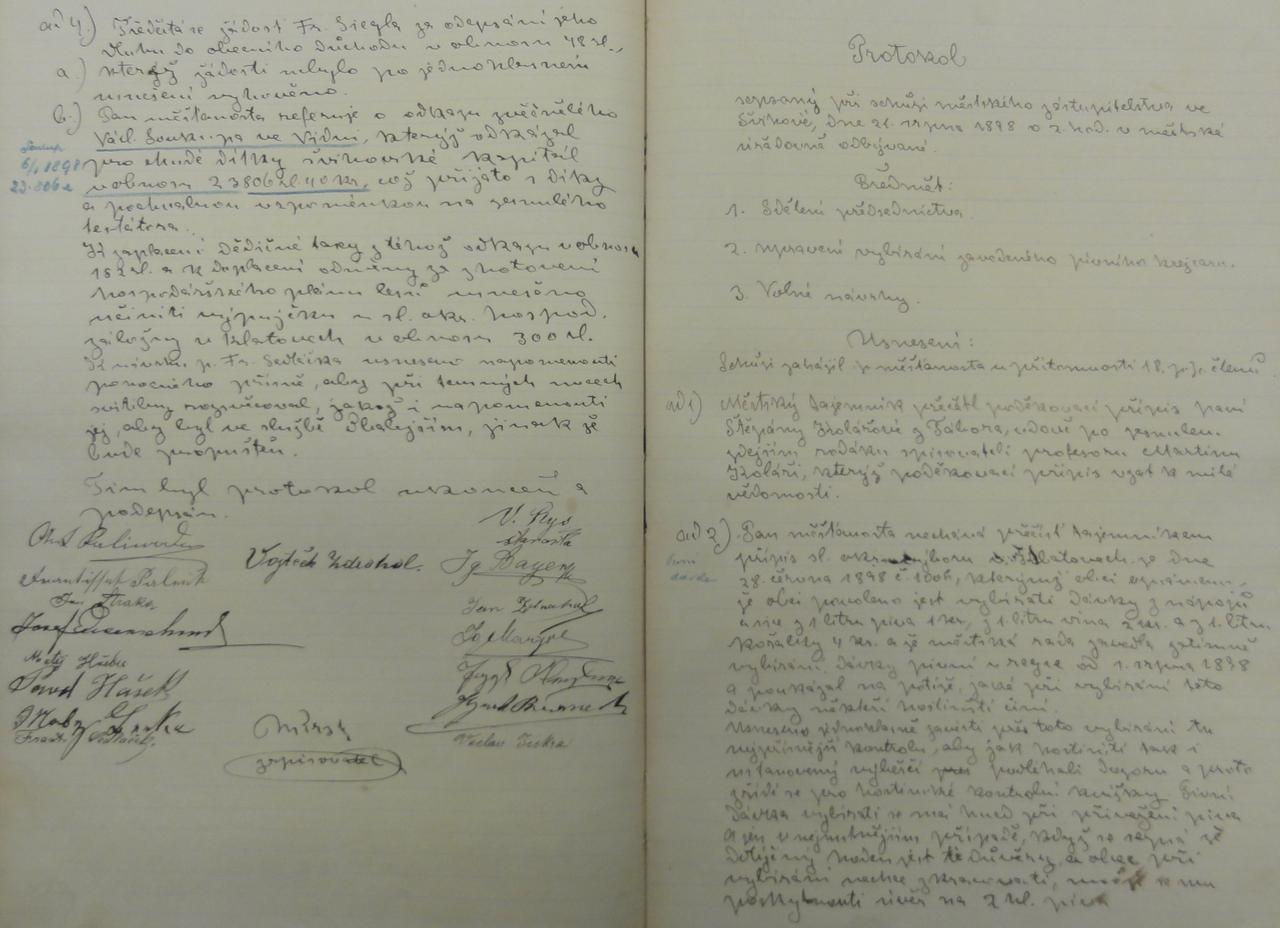 ad 4.) Předčítá se žádost Fr. Siegla za odepsání jeho
dluhu do obecního důchodu v obnosu 48 zl.,
a.) kteréž žádosti nebylo po jednohlasném
usnešení vyhověno.
b.) Pan měšťanosta referuje o odkazu zvěčnělého
Václ. Soukupa ve Vídni, kterýž odkázal
pro chudé dítky švihovské kapitál
v obnosu 23806 zl. 40 kr., což přijato s díky
a pochvalnou vzpomínkou na zesnulého
testátora.
Soukup
6/1 1898
23.806
K zaplacení dědičné taxy z téhož odkazu v obnosu
182 zl. a k doplacení odměny za zhotovení
hospodářského plánu lesů usnešeno
učiniti výpujčku u sl. okr. hospod.
záložny v Klatovech v obnosu 300 zl.
K návrhu p. Fr. Sedláčka usneseno napomenouti
ponocného přísně, aby při temných nocech
svítilny rozsvěcoval, jakož i napomenouti
jej, aby byl ve službě dbalejším, jinak že
bude propuštěn.
Tím byl protokol ukončen a
podepsán.
V. Rys
starosta
Vojtěch Zdrahal.
Ig. Bayer
Jan Straka
Matěj
Pavel Hášek
zapisovatel
Protokol
sepsaný při schůzi městského zastupitelstva ve
Švihově, dne 21. srpna 1898 o 2. hod. v městské
úřadovně odbývané.
Předmět:
1. Sdělení předsednictva.
2. Upravení vybírání zavedeného pivního krejcaru.
3. Volné návrhy.
Usnesení:
Schůzi zahájil p. měšťanosta u přítomnosti 18. p. p. členů
ad 1) Městský tajemník přečetl poděkovací přípis paní
Štěpány Kolářové z Tábora, vdově po zesnulém
zdejším rodáku spisovateli profesoru Martinu
Koláři, kterýž poděkovací přípis vzat k milé
vědomosti.
ad 2.) Pan měšťanosta nechává přečíst tajemníkem
přípis sl. okr. výboru v Klatovech ze dne
28. června 1898 č. 1606, kterýmž obci oznámeno,
že obci povoleno jest vybírati dávky z nápojů
a sice z 1 litru piva 1 kr, z 1 litru vína 2 kr. a z 1. litru
kořalky 4 kr. a že městská rada zavedla zatímně
vybírání dávky pivní v regie od 1. srpna 1898
a poukázal na potíže, jaké při vybírání této
dávky někteří hostinští činí.
pivní
dávka
Usneseno jednohlasně zavésti přes toto vybírání tu
nejpřísnější kontrolu, aby jak hostinští tak i
ustanovený výběrčí podléhali dozoru a proto
zřídí se pro hostinské kontrolní knížky. Pivní
dávka vybírati se má hned při přivážení piva
a jen v nejnutnějším případě, když se uzná že
dotyčný hoden jest té důvěry, a obec při
vybírání nechce zkracovati, může se mu
poskytnouti úvěr na 2 hl. piva